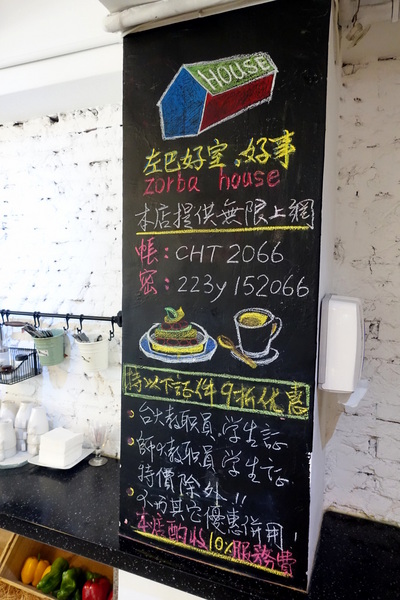 HOUSE
左巴好室、好事
zorba house
本店提供無限上網
帳：CHT 2066
密：223y152066
持以下証件9折优惠
台大教職員、学生証
師大教職員 学生証
特價除外!!
不與其它優惠併用!
本店酌收10%服務費